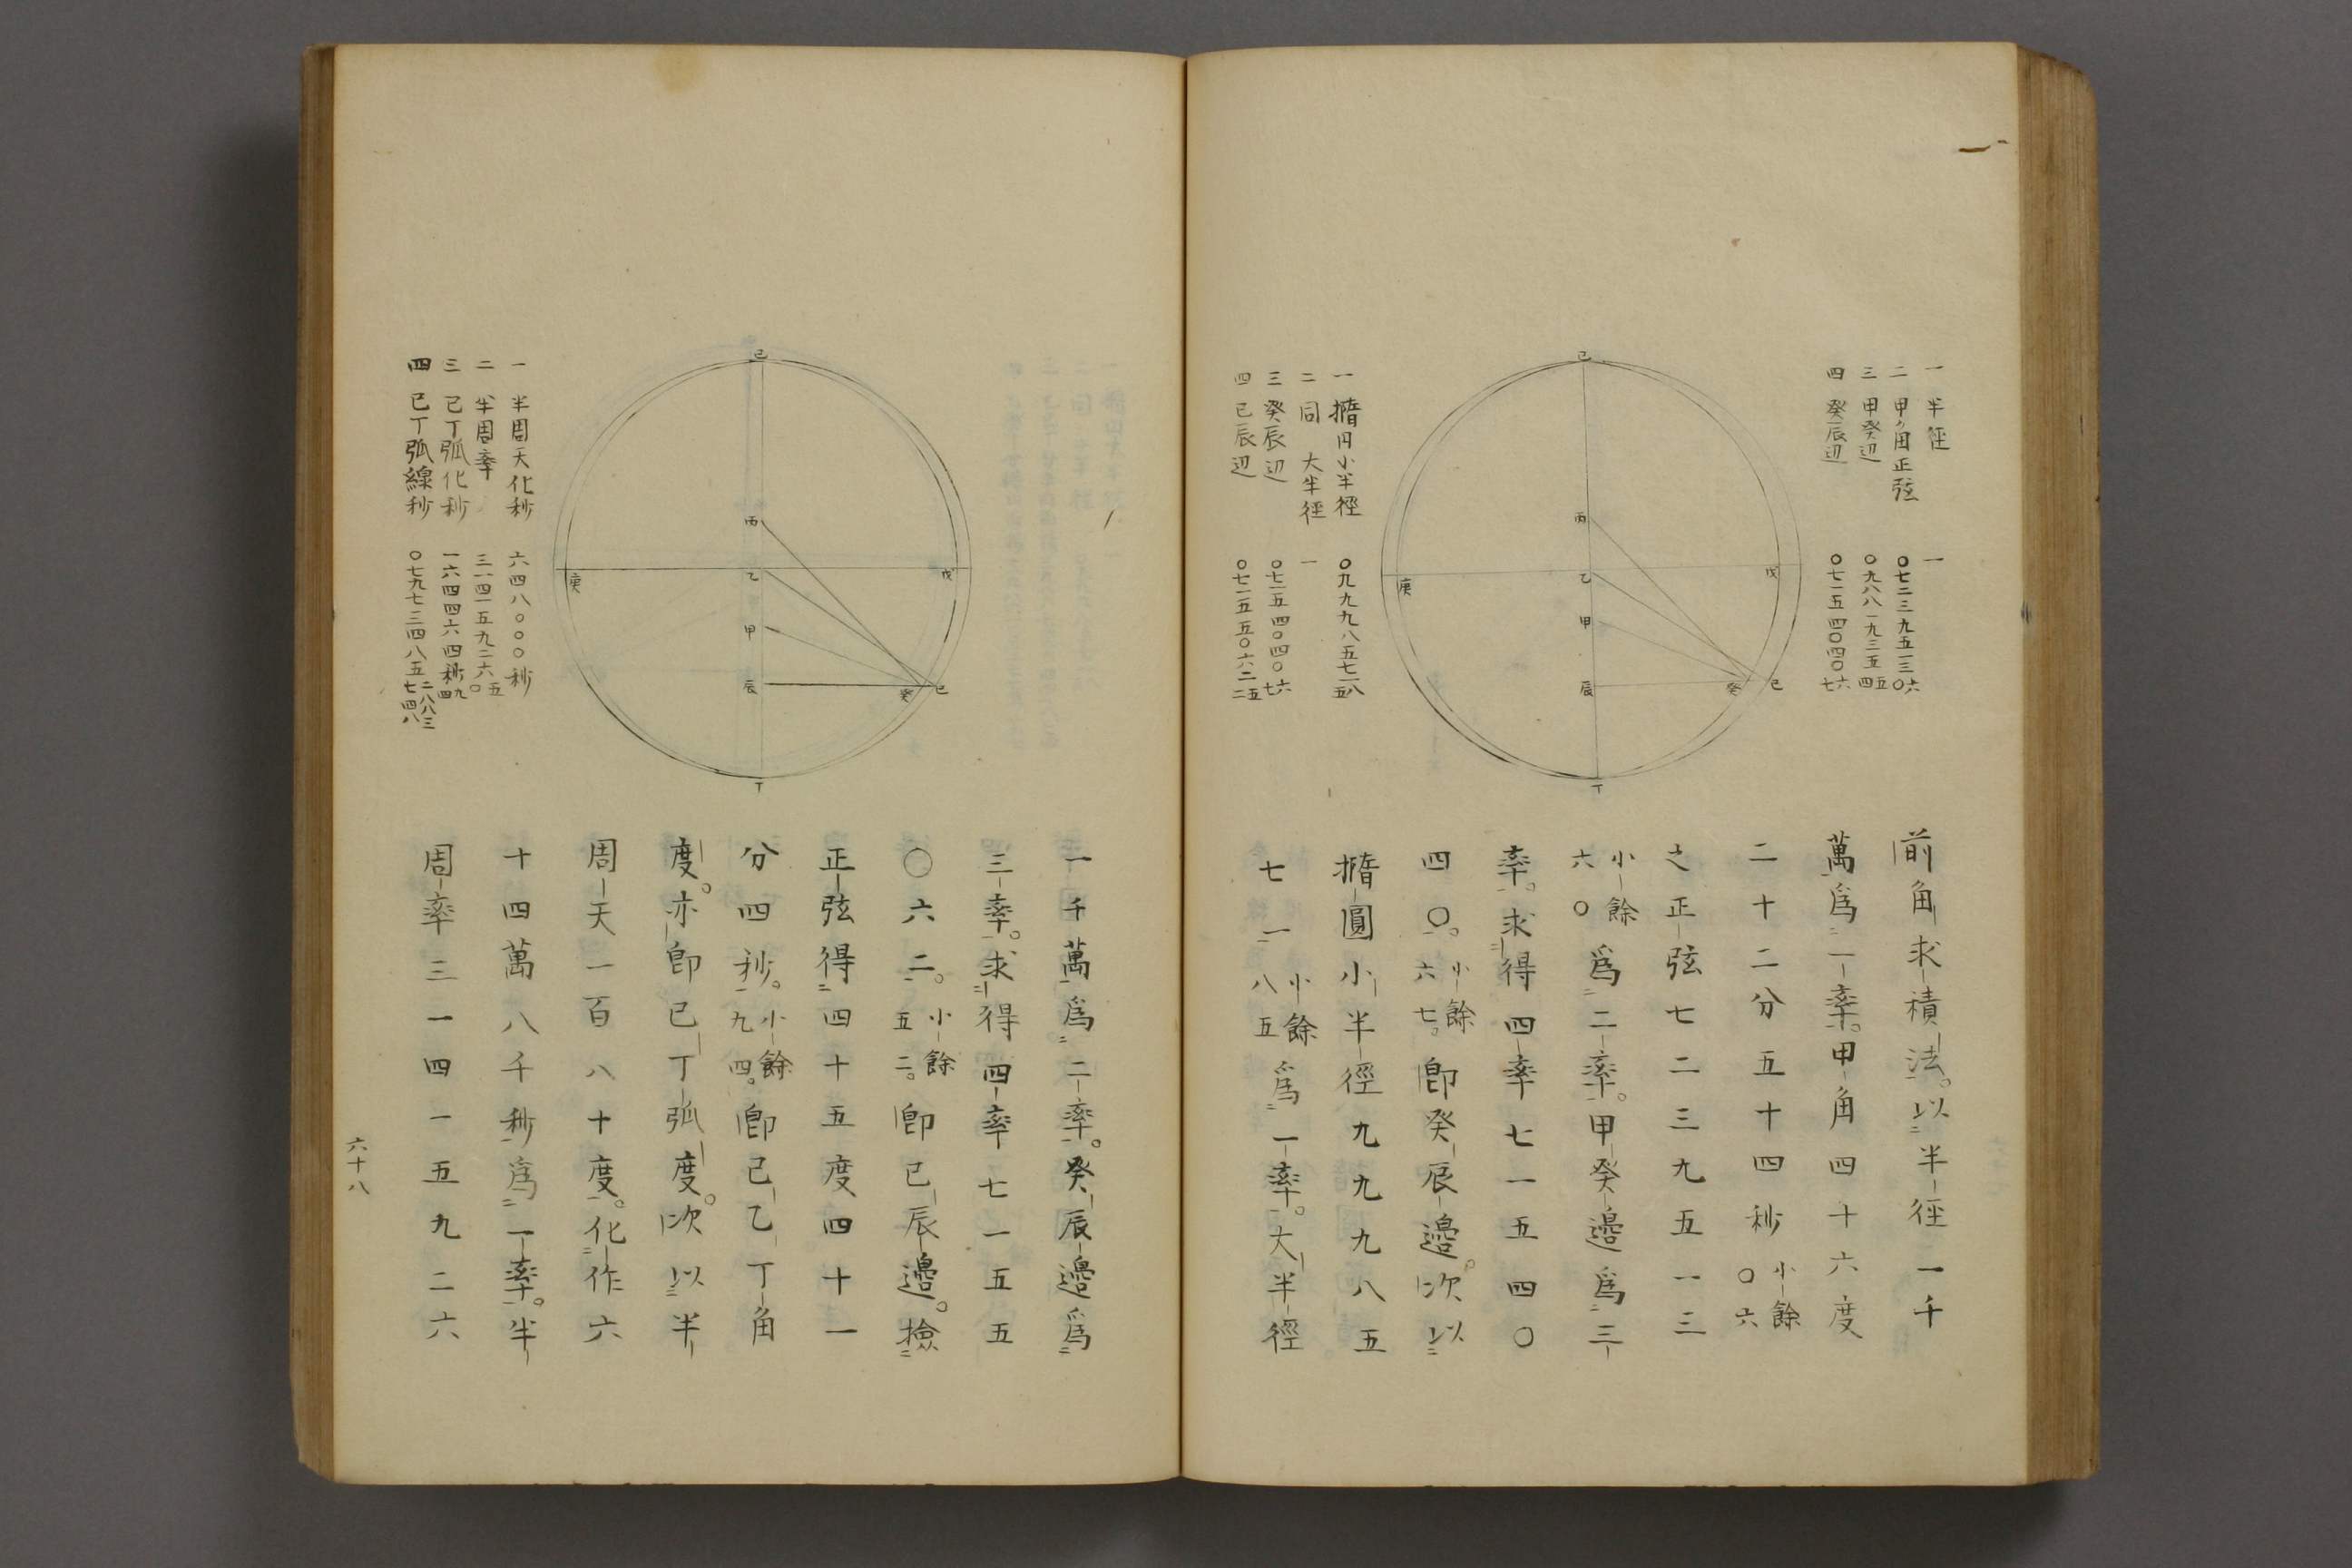 一 半徑
二 甲角正弦
三 甲癸辺
四 癸辰辺
一
〇七二三九五一三六〇
〇九八八一九三五五四
〇七一五四〇四〇六七
己
丙
乙
甲
辰
丁
戊
庚
癸
己
一 撱円小半徑
二 同 大半徑
三 癸辰辺
四 己辰辺
〇九九九八五七一八五
一
〇七一五四〇四〇六七
〇七一五五〇六二五二
前角求積法。以半徑一千
萬爲一率。甲角四十六度
二十二分五十四秒小餘〇六
之正弦七二三九五一三
小餘六〇爲二率。甲癸邊爲三
率。求得四率七一五四〇
四〇。小餘六七。卽癸辰邊。次以
撱圓小半徑九九九八五
七一小餘八五爲一率。大半徑
己
丙
乙
甲
辰
丁
戊
庚
癸
己
一 半周天化秒
二 半周率
三 己丁弧化秒
四 己丁弧線秒
六四八〇〇〇秒
三一四一五九二六五〇
一六四四六四秒九四
〇七九七三四八五二八八三七四八
一千萬爲二率。癸辰邊爲
三率。求得四率七一五五
〇六二。小餘五二。卽己辰邊。撿
正弦得四十五度四十一
分四秒。小餘九四。卽己乙丁角
度。亦卽己丁弧度。次以半
周天一百八十度。化作六
十四萬八千秒爲一率。半
周率三一四一五九二六
六十八